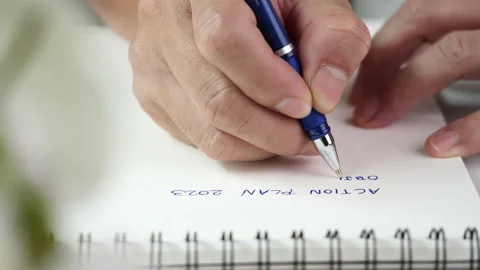 ACTION PLAN 2023
OBJ